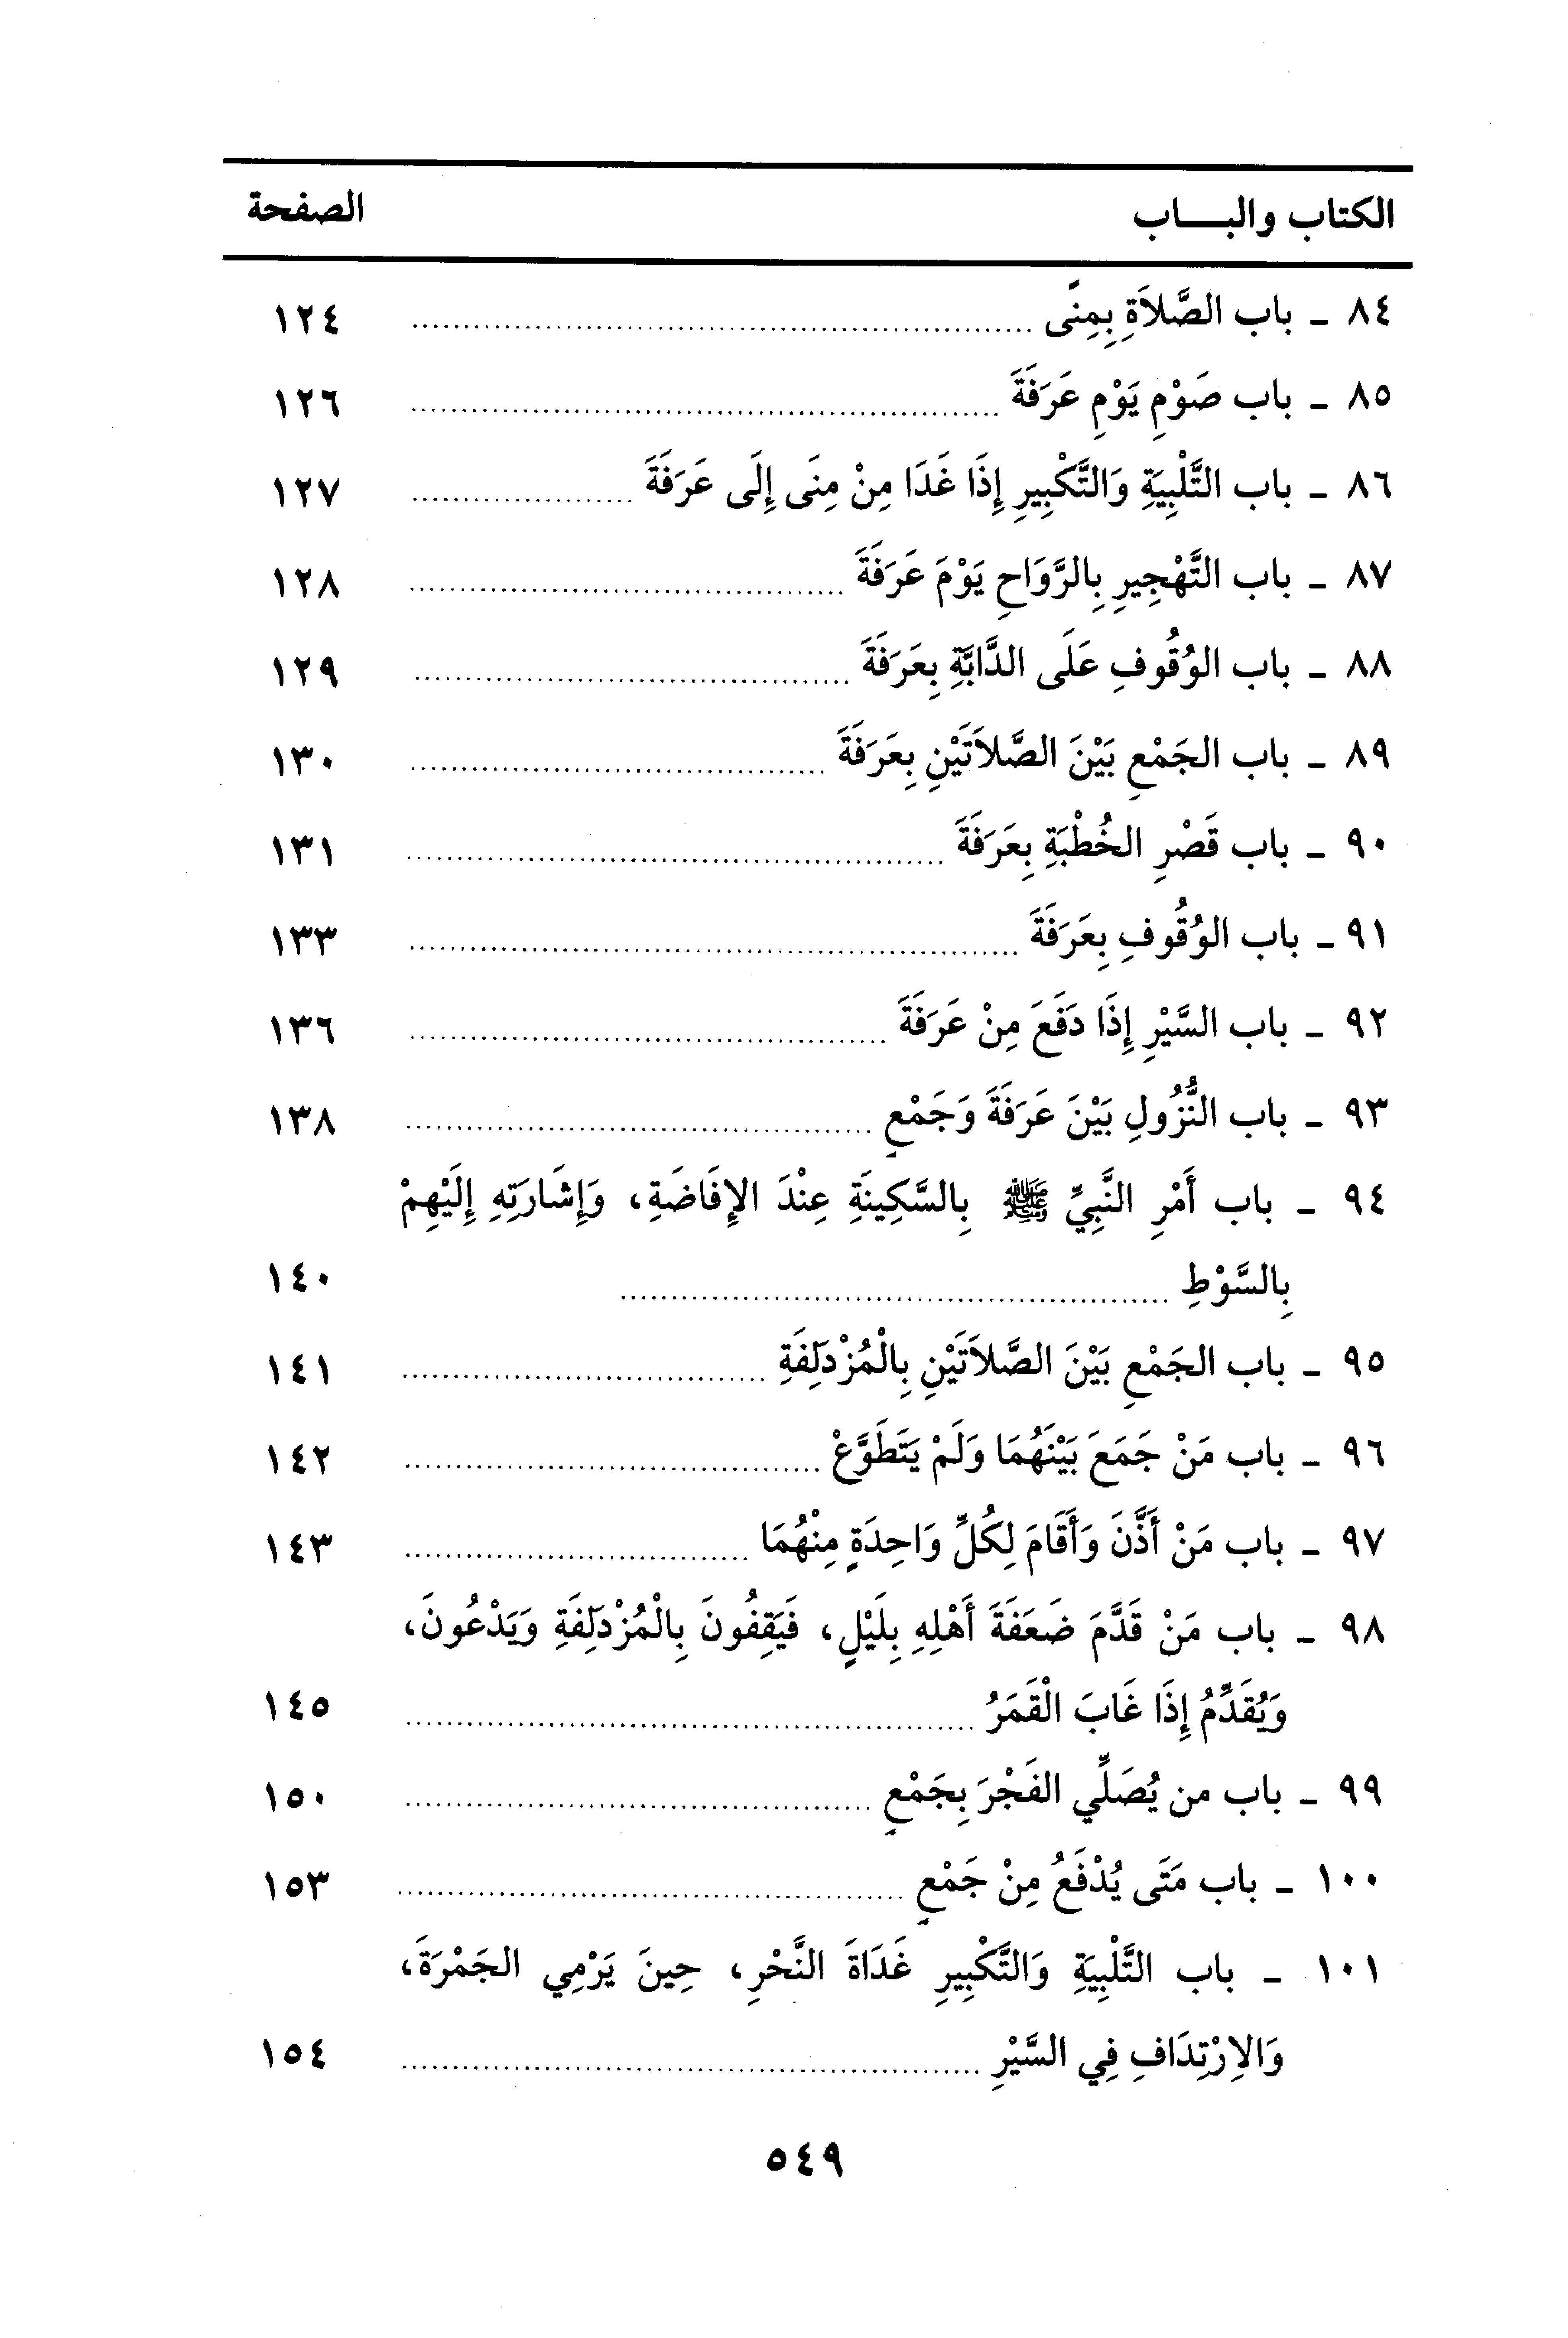 الكتاب والبـــاب الصفحة
٨٤ - باب الصَّلاَةِ بِمِنًى ........ ١٢٤
٨٥ - باب صَوْمِ يَوْمِ عَرَفَةَ ........ ١٢٦
٨٦ - باب التَّلْبِيَةِ وَالتَّكْبِيرِ إِذَا غَدَا مِنْ مِنَى إِلَى عَرَفَةَ ........ ١٢٧
٨٧ - باب التَّهْجِيرِ بِالرَّوَاحِ يَوْمَ عَرَفَةَ ........ ١٢٨
٨٨ - باب الوُقُوفِ عَلَى الدَّابَّةِ بِعَرَفَةَ ........ ١٢٩
٨٩ - باب الجَمْعِ بَيْنَ الصَّلاَتَيْنِ بِعَرَفَةَ ........ ١٣٠
٩٠ - باب قَصْرِ الخُطْبَةِ بِعَرَفَةَ ........ ١٣١
٩١ - باب الوُقُوفِ بِعَرَفَةَ ........ ١٣٣
٩٢ - باب السَّيْرِ إِذَا دَفَعَ مِنْ عَرَفَةَ ........ ١٣٦
٩٣ - باب النُّزُولِ بَيْنَ عَرَفَةَ وَجَمْعٍ ........ ١٣٨
٩٤ - باب أَمْرِ النَّبِيِّ ﷺ بِالسَّكِينَةِ عِنْدَ الإِفَاضَةِ، وَإِشَارَتِهِ إِلَيْهِمْ
بِالسَّوْطِ ........ ١٤٠
٩٥ - باب الجَمْعِ بَيْنَ الصَّلاَتَيْنِ بِالْمُزْدَلِفَةِ ........ ١٤١
٩٦ - باب مَنْ جَمَعَ بَيْنَهُمَا وَلَمْ يَتَطَوَّعْ ........ ١٤٢
٩٧ - باب مَنْ أَذَّنَ وَأَقَامَ لِكُلِّ وَاحِدَةٍ مِنْهُمَا ........ ١٤٣
٩٨ - باب مَنْ قَدَّمَ ضَعَفَةَ أَهْلِهِ بِلَيْلٍ، فَيَقِفُونَ بِالْمُزْدَلِفَةِ وَيَدْعُونَ،
وَيُقَدِّمُ إِذَا غَابَ الْقَمَرُ ........ ١٤٥
٩٩ - باب من يُصَلِّي الفَجْرَ بِجَمْعٍ ........ ١٥٠
١٠٠ - باب مَتَى يُدْفَعُ مِنْ جَمْعٍ ........ ١٥٣
١٠١ - باب التَّلْبِيَةِ وَالتَّكْبِيرِ غَدَاةَ النَّحْرِ، حِينَ يَرْمِي الجَمْرَةَ،
وَالاِرْتِدَافِ فِي السَّيْرِ ........ ١٥٤
٥٤٩